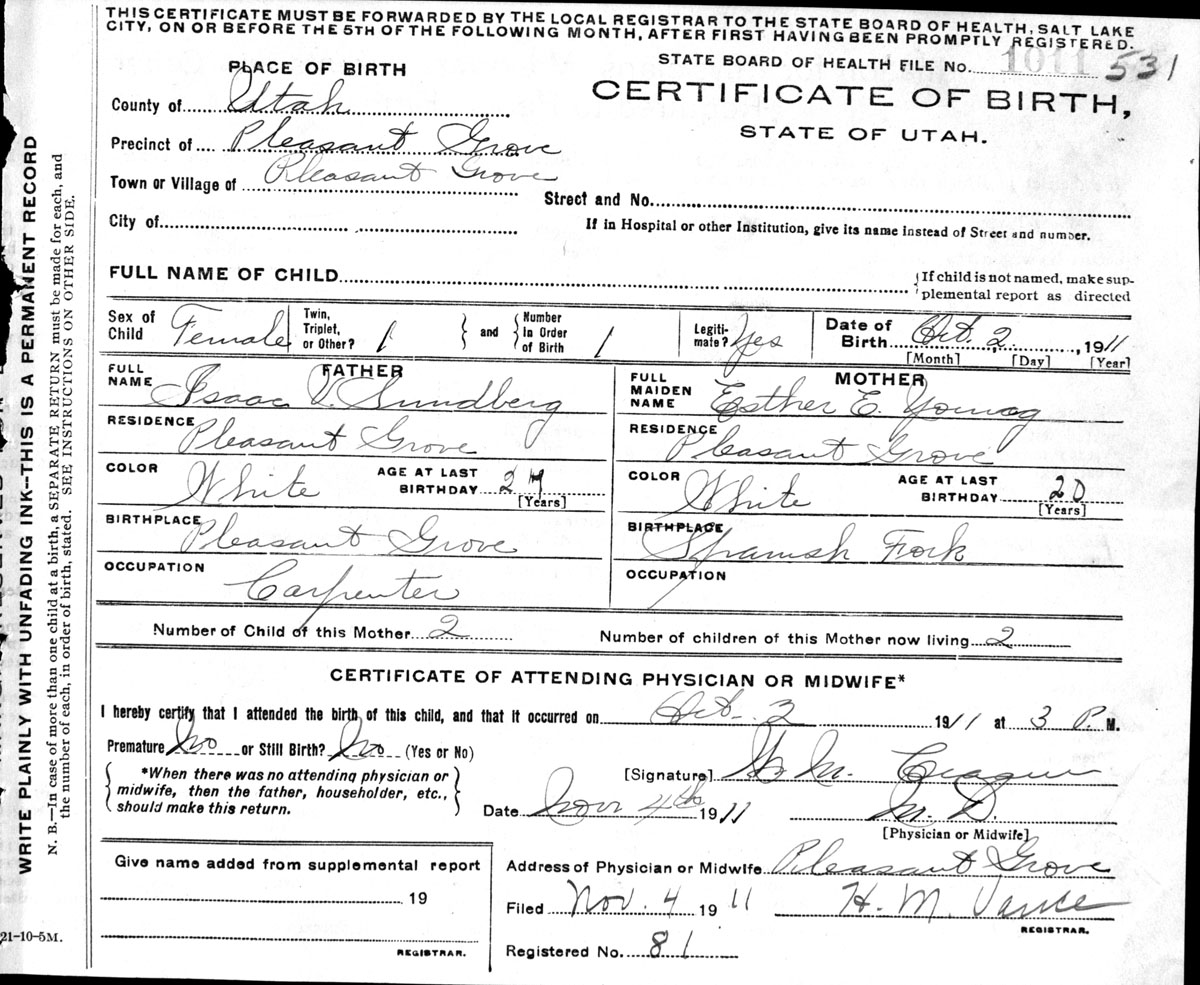 THIS CERTIFICATE MUST BE FORWARDED BY THE LOCAL REGISTRAR TO THE STATE BOARD OF HEALTH, SALT LAKE
CITY, ON OR BEFORE THE 5TH OF THE FOLLOWING MONTH, AFTER FIRST HAVING BEEN PROMPTLY REGISTERED.
STATE BOARD OF HEALTH FILE No. 1011 531
PLACE OF BIRTH
CERTIFICATE OF BIRTH,
STATE OF UTAH.
County of Utah
Precinct of Pleasant Grove
Town or Village of Pleasant Grove
Street and No.
City of
If in Hospital or other Institution, give its name instead of Street and number.
FULL NAME OF CHILD
{If child is not named, make sup-
plemental report as directed
Sex of Child Female
Twin, Triplet, or Other? 1
and
Number In Order of Birth 1
Legiti-mate? Yes
Date of Birth Oct. 2, 1911
[Month] [Day] [Year]
FATHER
FULL NAME Isaac V. Sundberg
RESIDENCE Pleasant Grove
COLOR White
AGE AT LAST BIRTHDAY
[Years]
BIRTHPLACE Pleasant Grove
OCCUPATION Carpenter
MOTHER
FULL MAIDEN NAME Esther E. Young
RESIDENCE Pleasant Grove
COLOR White
AGE AT LAST BIRTHDAY 20
[Years]
BIRTHPLACE Spanish Fork
OCCUPATION
Number of Child of this Mother 2
Number of children of this Mother now living 2
CERTIFICATE OF ATTENDING PHYSICIAN OR MIDWIFE*
I hereby certify that I attended the birth of this child, and that it occurred on Oct. 2 1911 at 3 P. M.
Premature No or Still Birth? No (Yes or No)
*When there was no attending physician or
midwife, then the father, householder, etc.,
should make this return.
[Signature]
Date Nov 4th 1911
M. D.
[Physician or Midwife]
Give name added from supplemental report
19
REGISTRAR.
Address of Physician or Midwife Pleasant Grove
Filed Nov. 4 1911
H. M. Vance
REGISTRAR.
Registered No. 81
WRITE PLAINLY WITH UNFADING INK--THIS IS A PERMANENT RECORD
N. B.—In case of more than one child at a birth, a SEPARATE RETURN must be made for each, and
the number of each, in order of birth, stated. SEE INSTRUCTIONS ON OTHER SIDE.
21-10-5M.